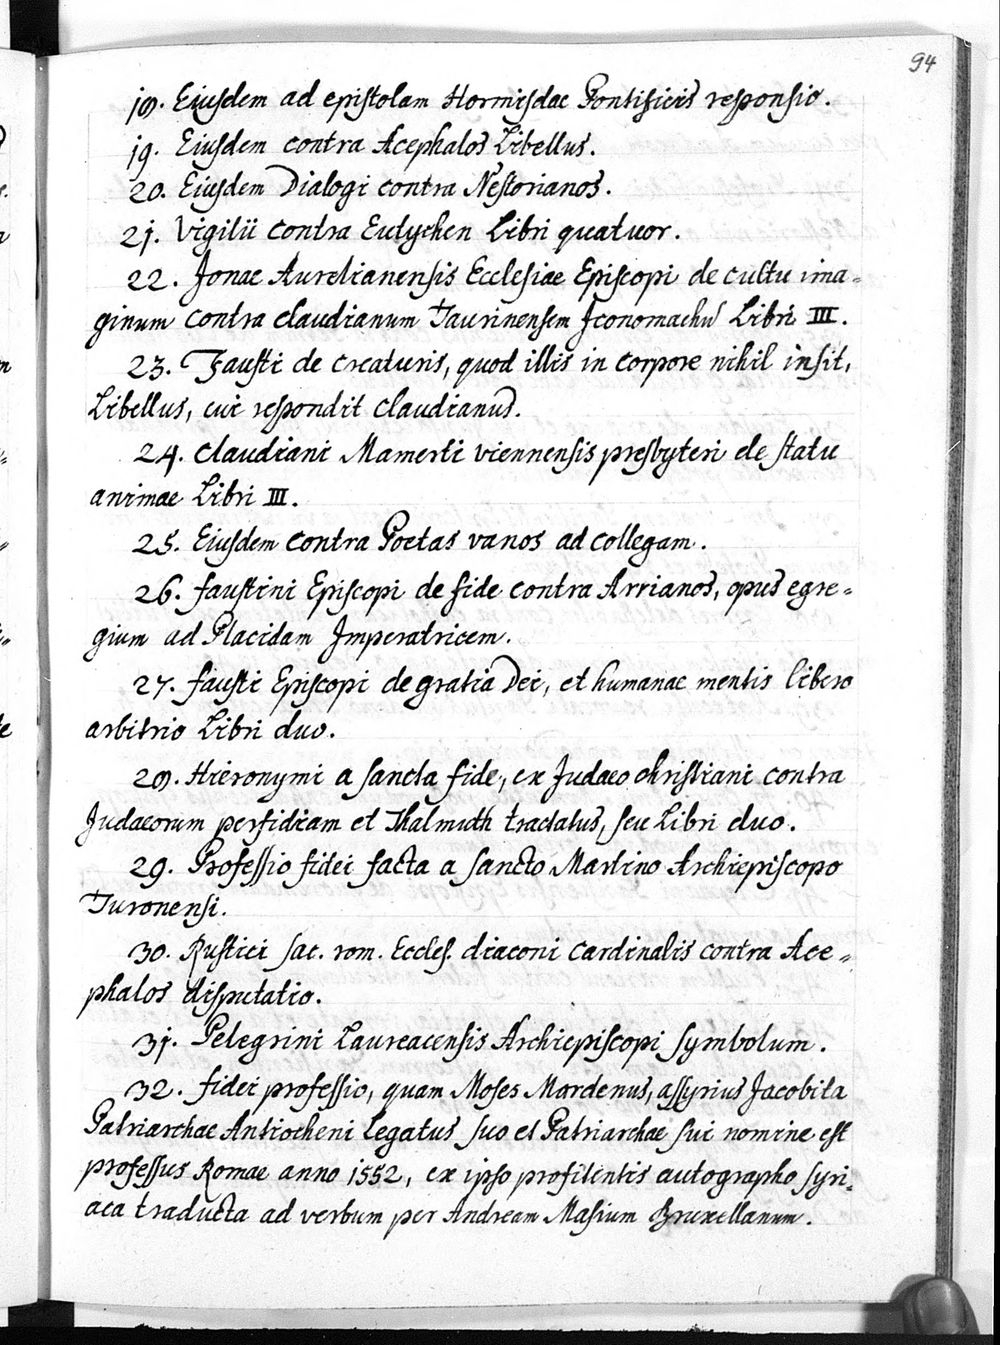 94
18. Eiusdem ad epistolam Hormisdae Pontificis responsio.
19. Eiusdem contra Acephalos Libellus.
20. Eiusdem Dialogi contra Nestorianos.
21. Vigilii contra Eutychen Libri quatuor.
22. Jonae Aurelianensis Ecclesiae Episcopi de cultu ima=
ginum contra claudianum Taurinensem Jconomachū Libri III.
23. Fausti de creaturis, quod illis in corpore nihil insit,
Libellus, cui respondit claudianus.
24. claudiani Mamerti viennensis presbyteri de statu
animae Libri III.
25. Eiusdem contra Poetas vanos ad collegam.
26. faustini Episcopi de fide contra Arrianos, opus egre=
gium ad Placidam Jmperatricem.
27. fausti Episcopi de gratia Dei, et humanae mentis libero
arbitrio Libri duo.
28. Hieronymi a sancta fide, ex Judaeo christiani contra
Judaeorum perfidiam et Thalmuth tractatus, seu Libri duo.
29. Professio fidei facta a sancto Martino Archiepiscopo
Turonensi.
30. Rustici sac. rom. Eccles. diaconi cardinalis contra Ace=
phalos disputatio.
31. Pelegrini Laureacensis Archiepiscopi symbolum.
32. fidei professio, quam Moses Mardenus, assyrius Jacobita
Patriarchae Antiocheni Legatus suo et Patriarchae sui nomine est
professus Romae anno 1552, ex ipso profitentis autographo syri=
aca traducta ad verbum per Andream Masium Bruxellanum.